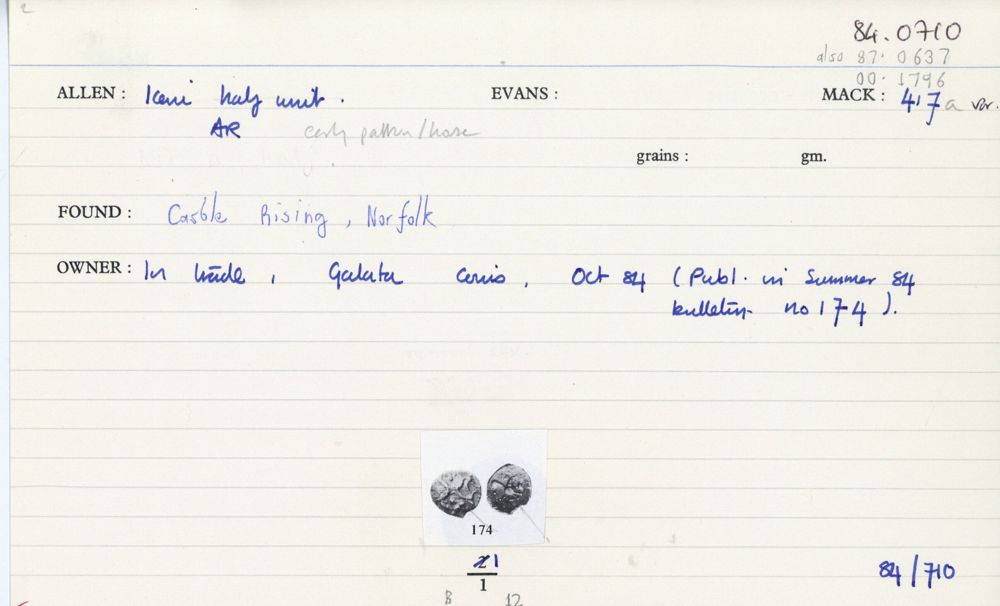 84.0710
also 87.0637
00.1796
ALLEN : Iceni half unit . EVANS : MACK : 417a var.
AR early pattern/horse
grains : gm.
FOUND : Castle Rising, Norfolk
OWNER : In trade, Galata Coins, Oct 84 (Publ. in Summer 84
bulletin no 174).
174
1
1
84/710
B 12